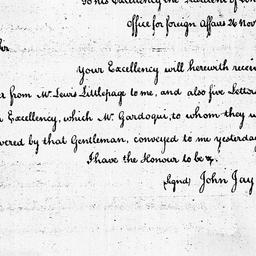 To His Excellency the President of Con
Office for foreign Affairs 26 Nov
Sir
Your Excellency will herewith recei
er from Mr. Lewis Littlepage to me, and also five Letters
n Excellency, which Mr. Gardoqui, to whom they w
vered by that Gentleman, conveyed to me yesterday
I have the Honour to be &c.
(signd) John Jay